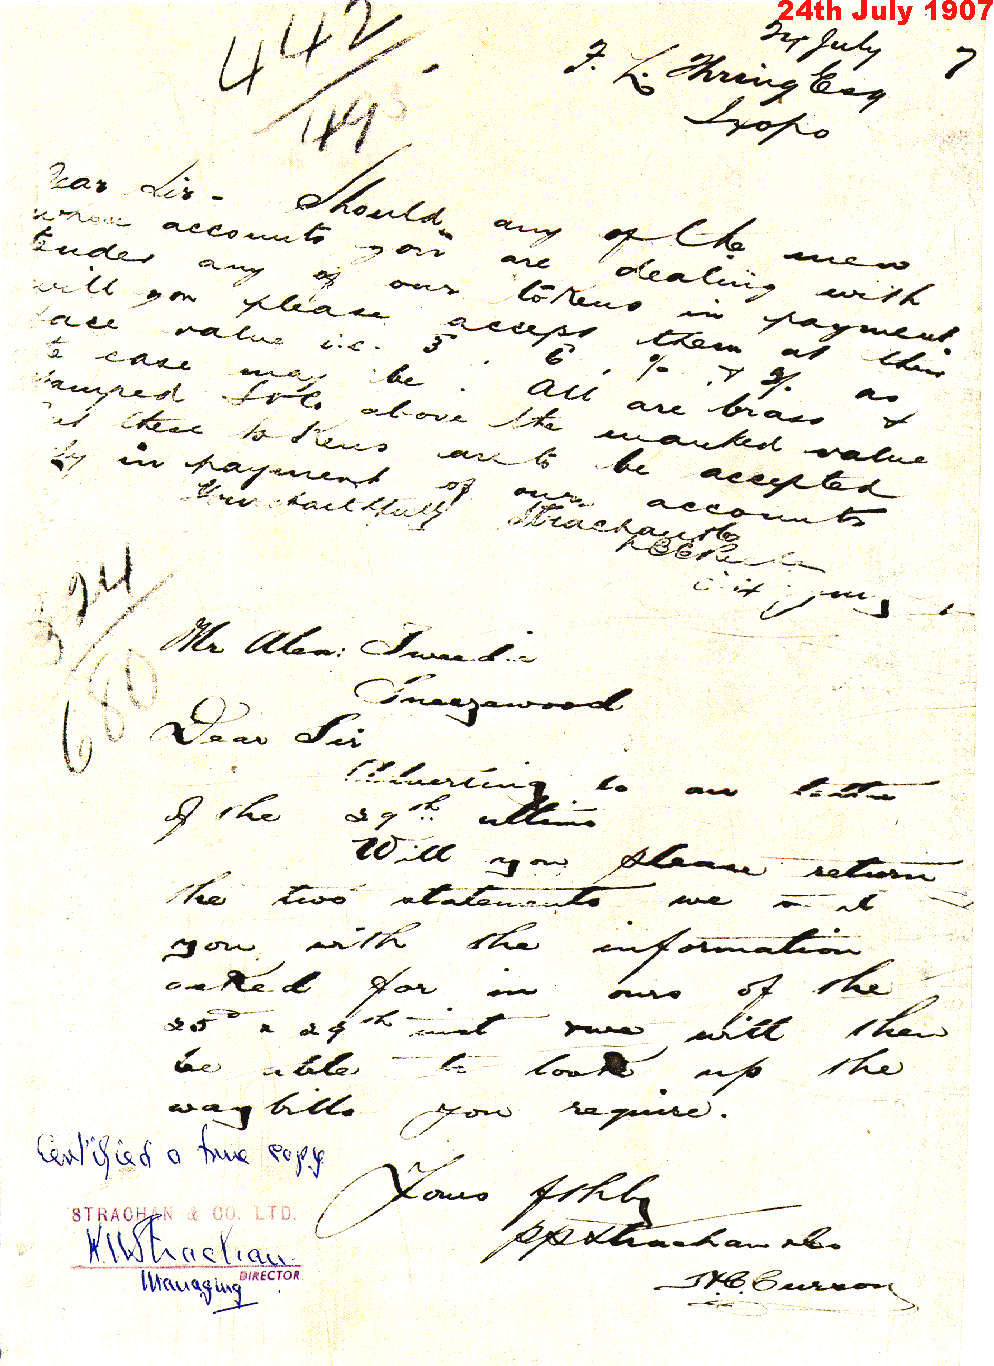 24th July 1907
442
493
24 July 7
F. L. Thring Esq
Ixopo
Dear Sir - Should any of the men
whose accounts you are dealing with
tender any of our tokens in payment
will you please accept them at their
face value i.e. 3. 6, 1/- & 2/- as
the case may be. All are brass &
stamped S & Co above the marked value
these tokens are to be accepted
by in payment of our accounts
Yours faithfully Strachan & Co
324
680
Mr Alex: Tweedie
Sneezewood
Dear Sir
Adverting to our letter
of the 29th ultimo
Will you please return
the two statements we sent
you with the information
asked for in ours of the
25th & 29th inst & we will then
be able to look up the
waybills you require.
Yours ffthly
pp Strachan & Co
H.C. Curson
Certified a true copy
STRACHAN & CO. LTD.
Strachan
Managing DIRECTOR